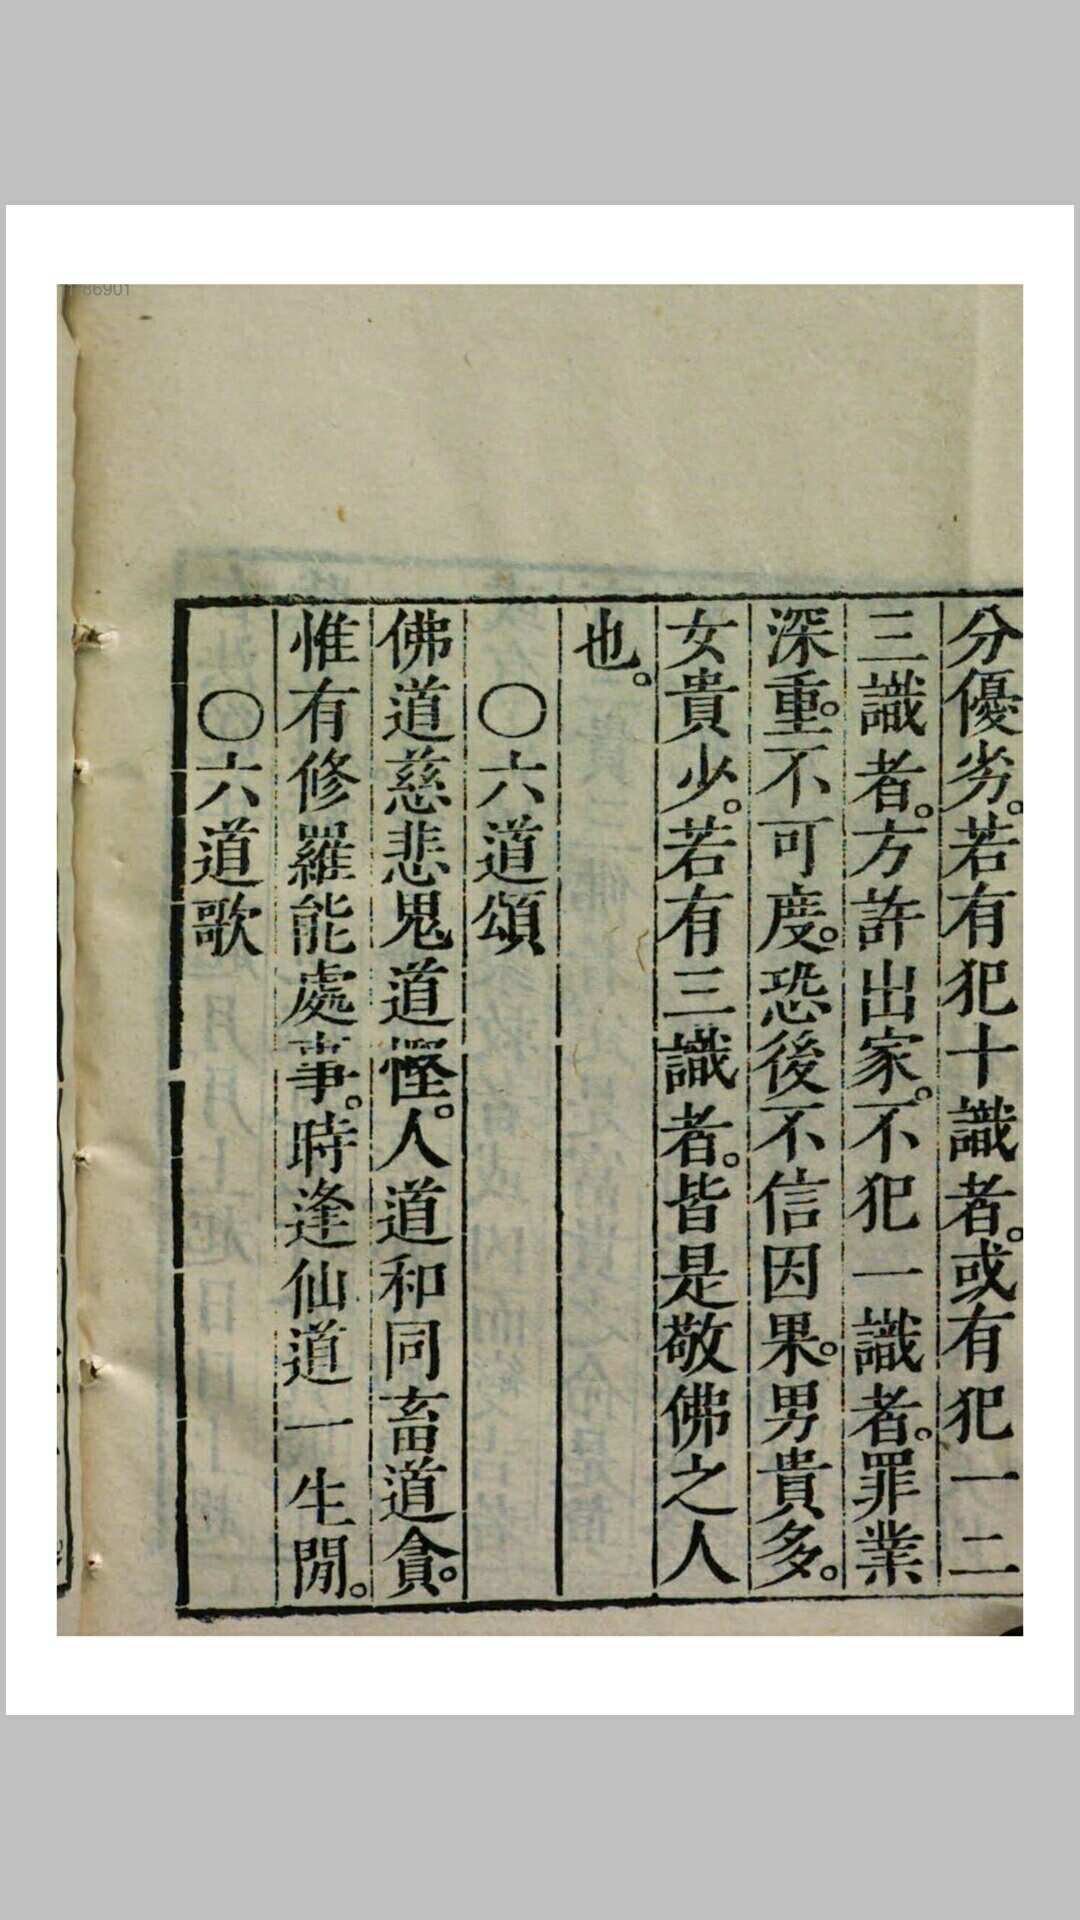 分優劣。若有犯十識者。或有犯一二
三識者。方許出家。不犯一識者。罪業
深重。不可度。恐後不信因果。男貴多。
女貴少。若有三識者。皆是敬佛之人
也。
○六道頌
佛道慈悲鬼道慳。人道和同畜道貪。
惟有修羅能處事。時逢仙道一生閒。
○六道歌
86901